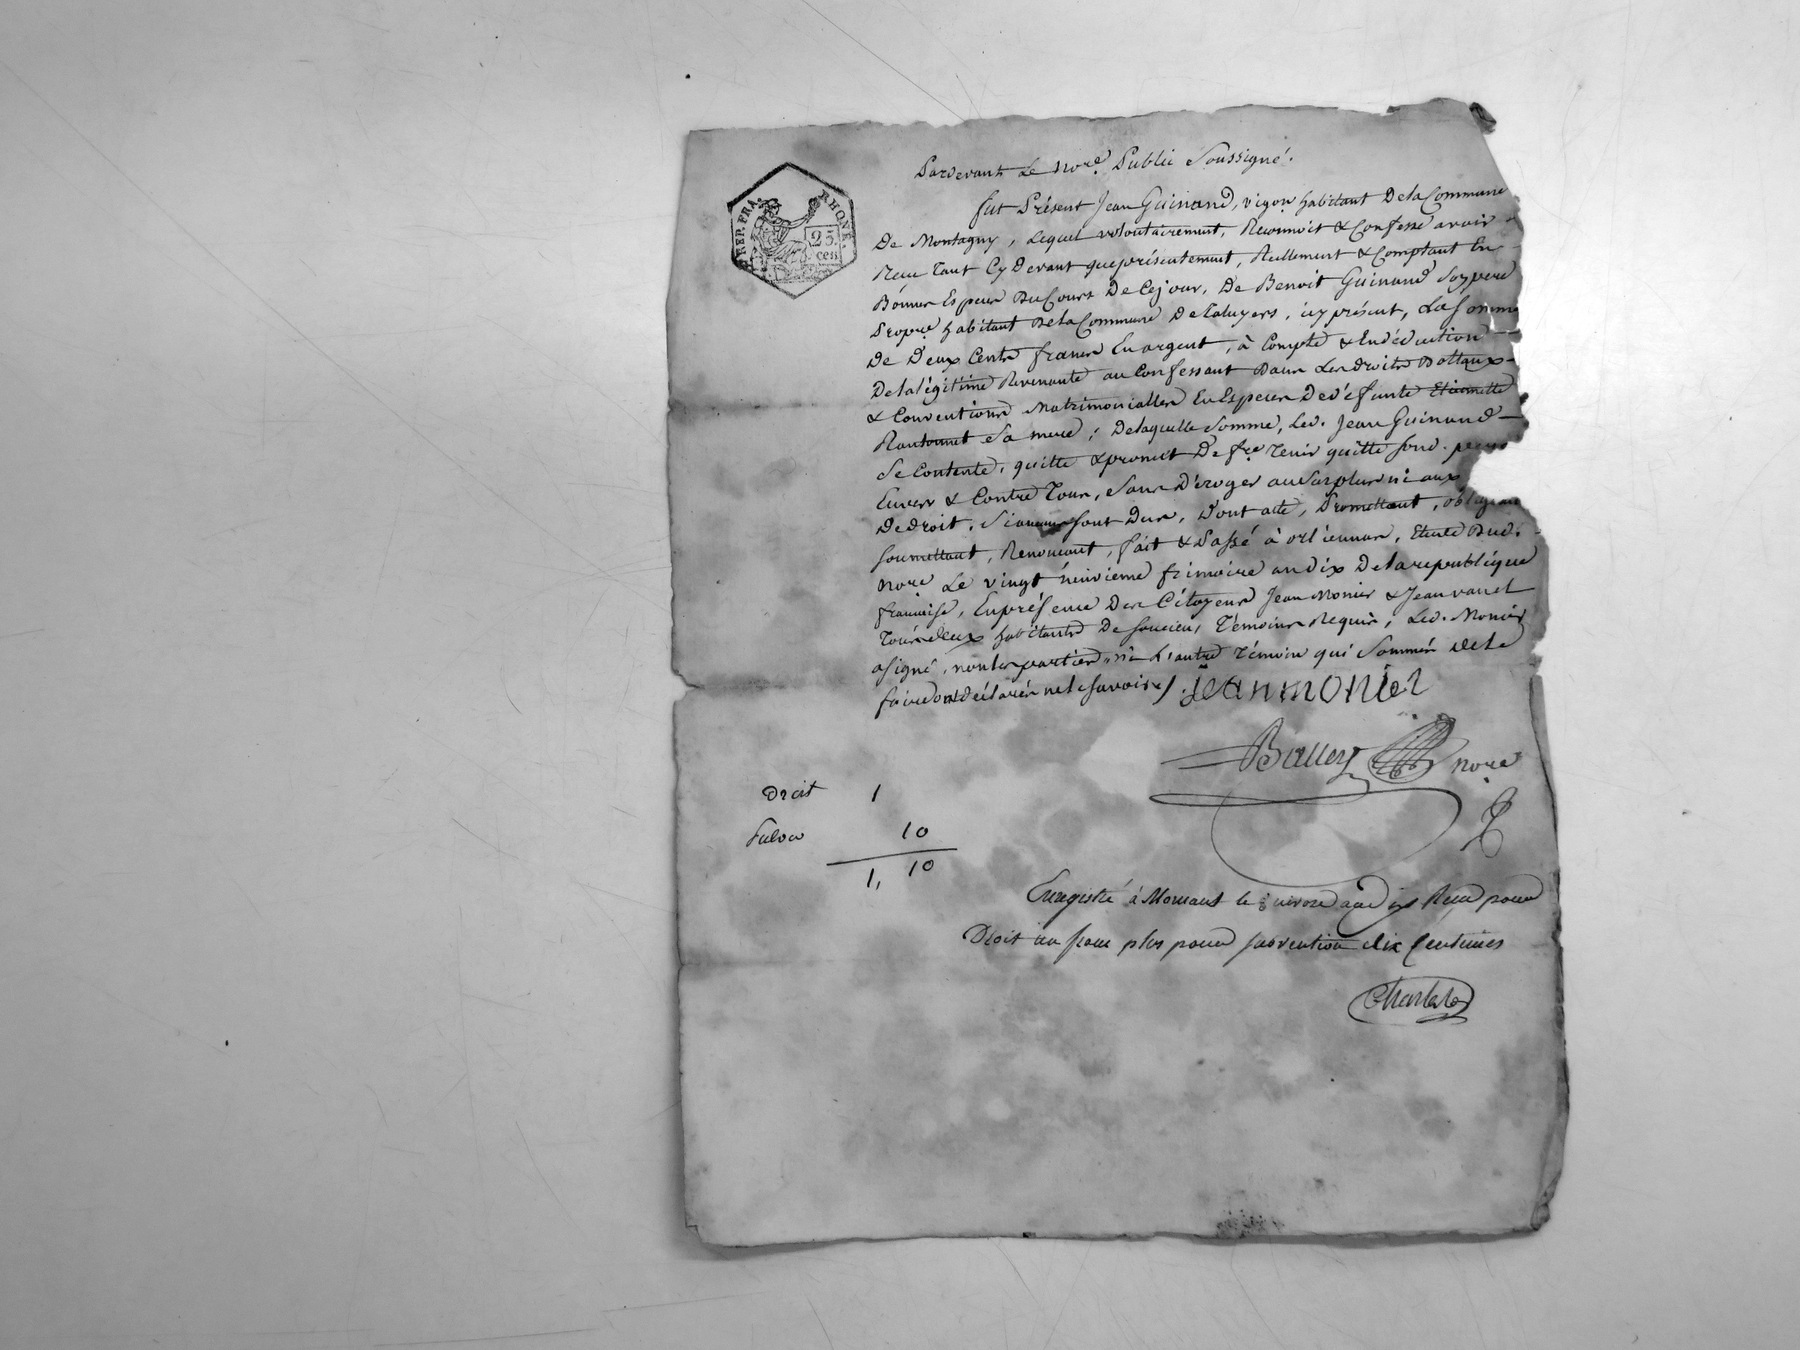 Pardevant Le nore. Public Soussigné.
REP. FRA. RHONE.
25
cen
fut Présent Jean Guinand, vigon habitant De la Commune
De Montagny, Lequel volontairement, Reconnoit & Confesse avoir
Reçu tant Cy Devant que présentement, Réellement & Comptant En
Bonnes Espèces Du Cours De Cejour, De Benoit Guinand Son pere
Propre. habitant De la Commune De taluyers, icy présent, La Somme
De Deux Cents francs En argent, à Compte & En déduction
De la légitime Revenante au Confessant Dans Les droits Dottaux
& Conventions Matrimonialles En Especes De défunte Etiennette
Sa mere; De laquelle Somme, Led. Jean Guinand
Se Contente, quitte & promet De fre. tenir quitte Sond. pere
Envers & Contre Tous, Sans Déroger au Surplus ni aux
De Droit, Si aucuns Sont Dus, Dont acte, Promettant, obligeant
Soumettant, Renonçant, fait & Passé à orliennas, Etude Dud.
nore. Le vingt neuvieme frimaire an dix De la republique
francaise, En présence Des Citoyens Jean Monier & Jean vanel
Tous deux habitants De Soucieu, Témoins Requis; Led. Monier
a signé, non les parties, ni L'autre Témoin qui Sommés De le
faire ont déclarés ne le Savoir. jeanmonier
nore
Droit 1
Subon 10
1, 10
Enregistré à Mornant le 8 nivose an dix Reçu pour
Droit un franc plus pour Subvention dix Centimes